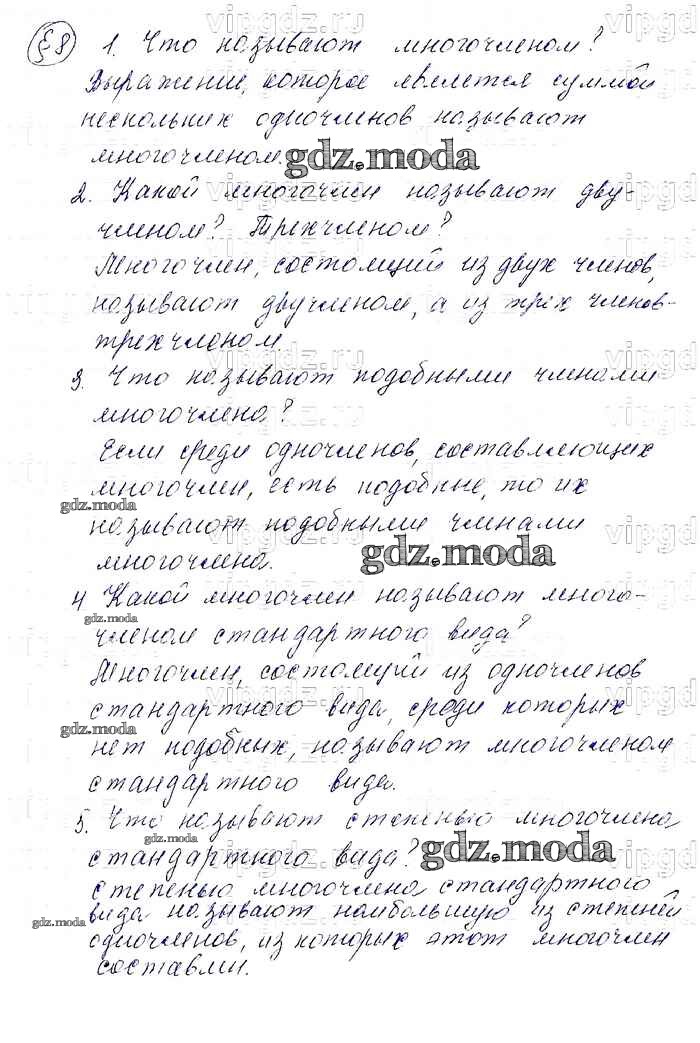 §8 1. Что называют многочленом?
Выражение, которое является суммой
нескольких одночленов называют
многочленом.
gdz.moda
2. Какой многочлен называют дву-
членом? Трехчленом?
Многочлен, состоящий из двух членов,
называют двучленом, а из трех членов-
трехчленом.
3. Что называют подобными членами
многочлена?
Если среди одночленов, составляющих
многочлен, есть подобные, то их
gdz.moda
называют подобными членами
многочлена.
gdz.moda
4 Какой многочлен называют много-
gdz.moda
членом стандартного вида?
Многочлен, состоящий из одночленов
стандартного вида, среди которых
gdz.moda
нет подобных, называют многочленом
стандартного вида.
5. Что называют степенью многочлена
gdz.moda
стандартного вида?
gdz.moda
степенью многочлена стандартного
вида называют наибольшую из степеней
gdz.moda
одночленов, из которых этот многочлен
составлен.
vipgdz.ru